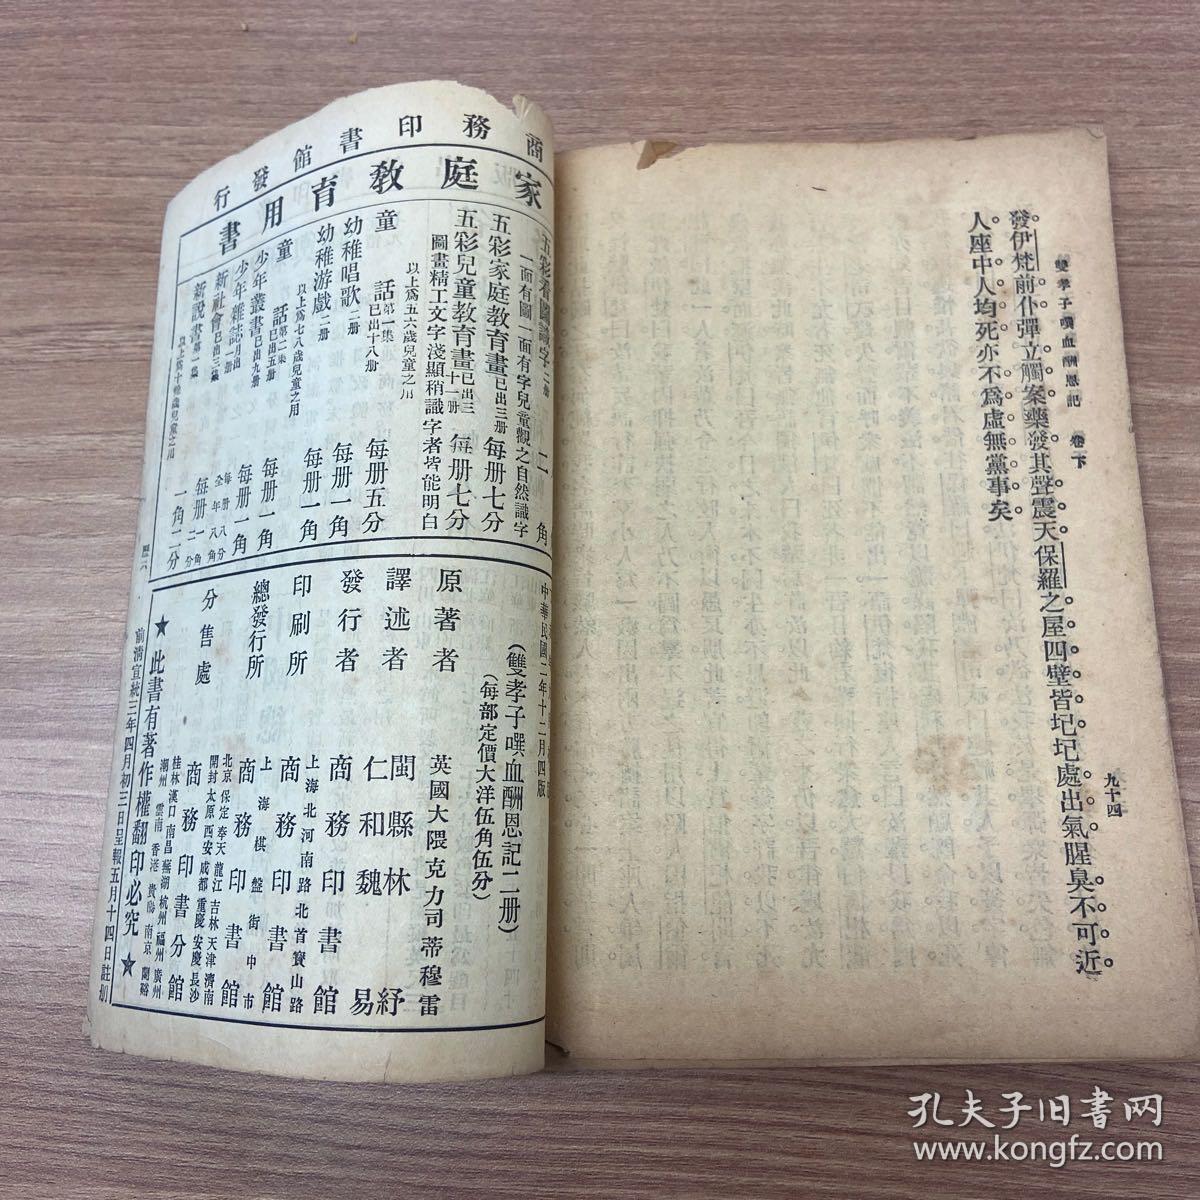 雙孝子噀血酬恩記 卷下
九十四
發伊梵前仆彈立觸案藥發其聲震天保羅之屋四壁皆圮圮處出氣腥臭不可近
人座中人均死亦不爲虛無黨事矣
商務印書館發行
家庭教育用書
五彩看圖識字 二册 二角
一面有圖一面有字兒童觀之自然識字
五彩家庭教育畫 已出三册 每册七分
五彩兒童教育畫 已出三十一册 每册七分
圖畫精工文字淺顯稍識字者皆能明白
以上爲五六歲兒童之用
童話 第一集已出十八册 每册五分
幼稚唱歌 二册 每册一角
幼稚游戲 二册 每册一角
以上爲七八歲兒童之用
童話 第二集已出五册 每册一角
少年叢書 已出九册 每册一角
少年雜誌 月出一册 每册八分 全年八角
新社會 已出三集 每册一角二分
新說書 第一集 一角二分
以上爲十餘歲兒童之用
中華民國二年十二月四版
(雙孝子噀血酬恩記二册)
(每部定價大洋伍角伍分)
原著者 英國大隈克力司蒂穆雷
譯述者 閩縣林紓
仁和魏易
發行者 商務印書館
上海北河南路北首寶山路
印刷所 商務印書館
上海棋盤街中市
總發行所 商務印書館
北京 保定 奉天 龍江 吉林 天津 濟南
開封 太原 西安 成都 重慶 安慶 長沙
分售處 商務印書分館
桂林 漢口 南昌 蕪湖 杭州 福州 廣州
潮州 雲南 香港 貴陽 南京 蘭谿
★此書有著作權翻印必究★
前清宣統三年四月初三日呈報五月十四日註册
孔夫子旧书网
www.kongfz.com